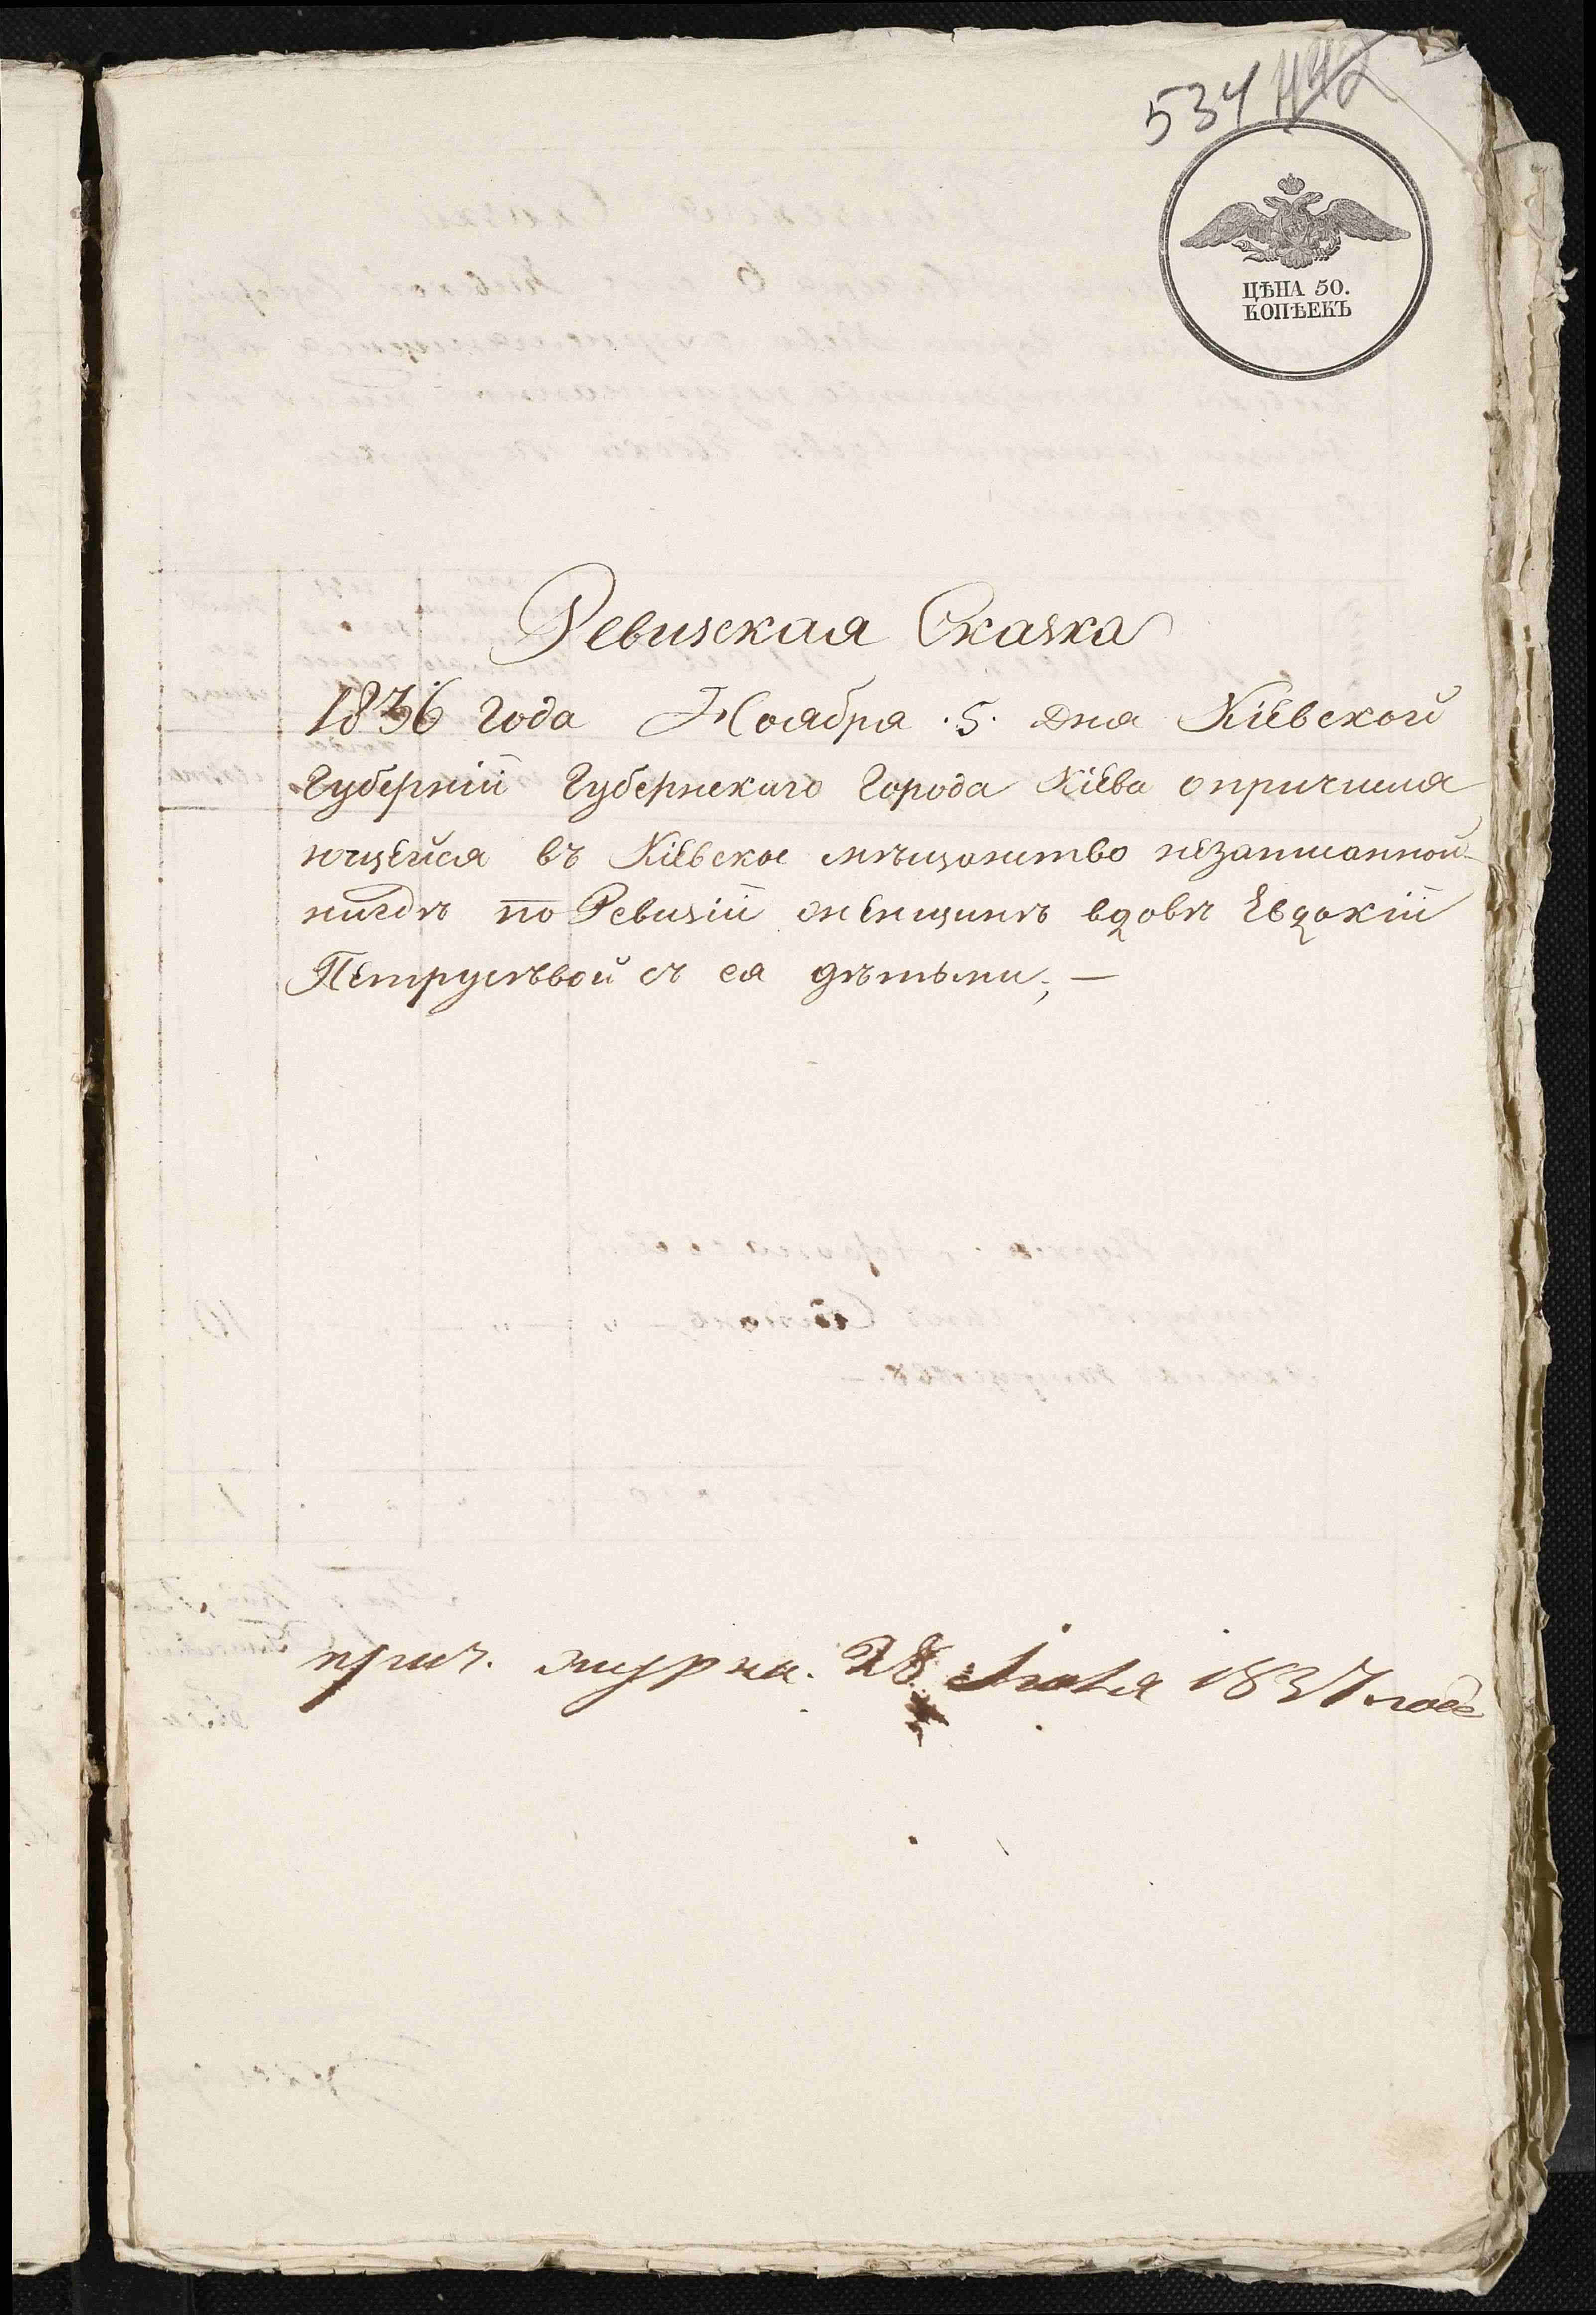 534 442
ЦѢНА 50.
КОПѢЕКЪ
Ревизская Сказка
1836 года Ноября .5. дня Кіевской
Губерніи Губернскаго Города Кіева опричисля
ющейся въ Кіевское мѣщанство незаписанной
нигдѣ по Ревизіи женщинѣ вдовѣ Евдокіи
Петрусѣвой съ ея дѣтьми; —
прич. журна. 28 Іюля 1837 года